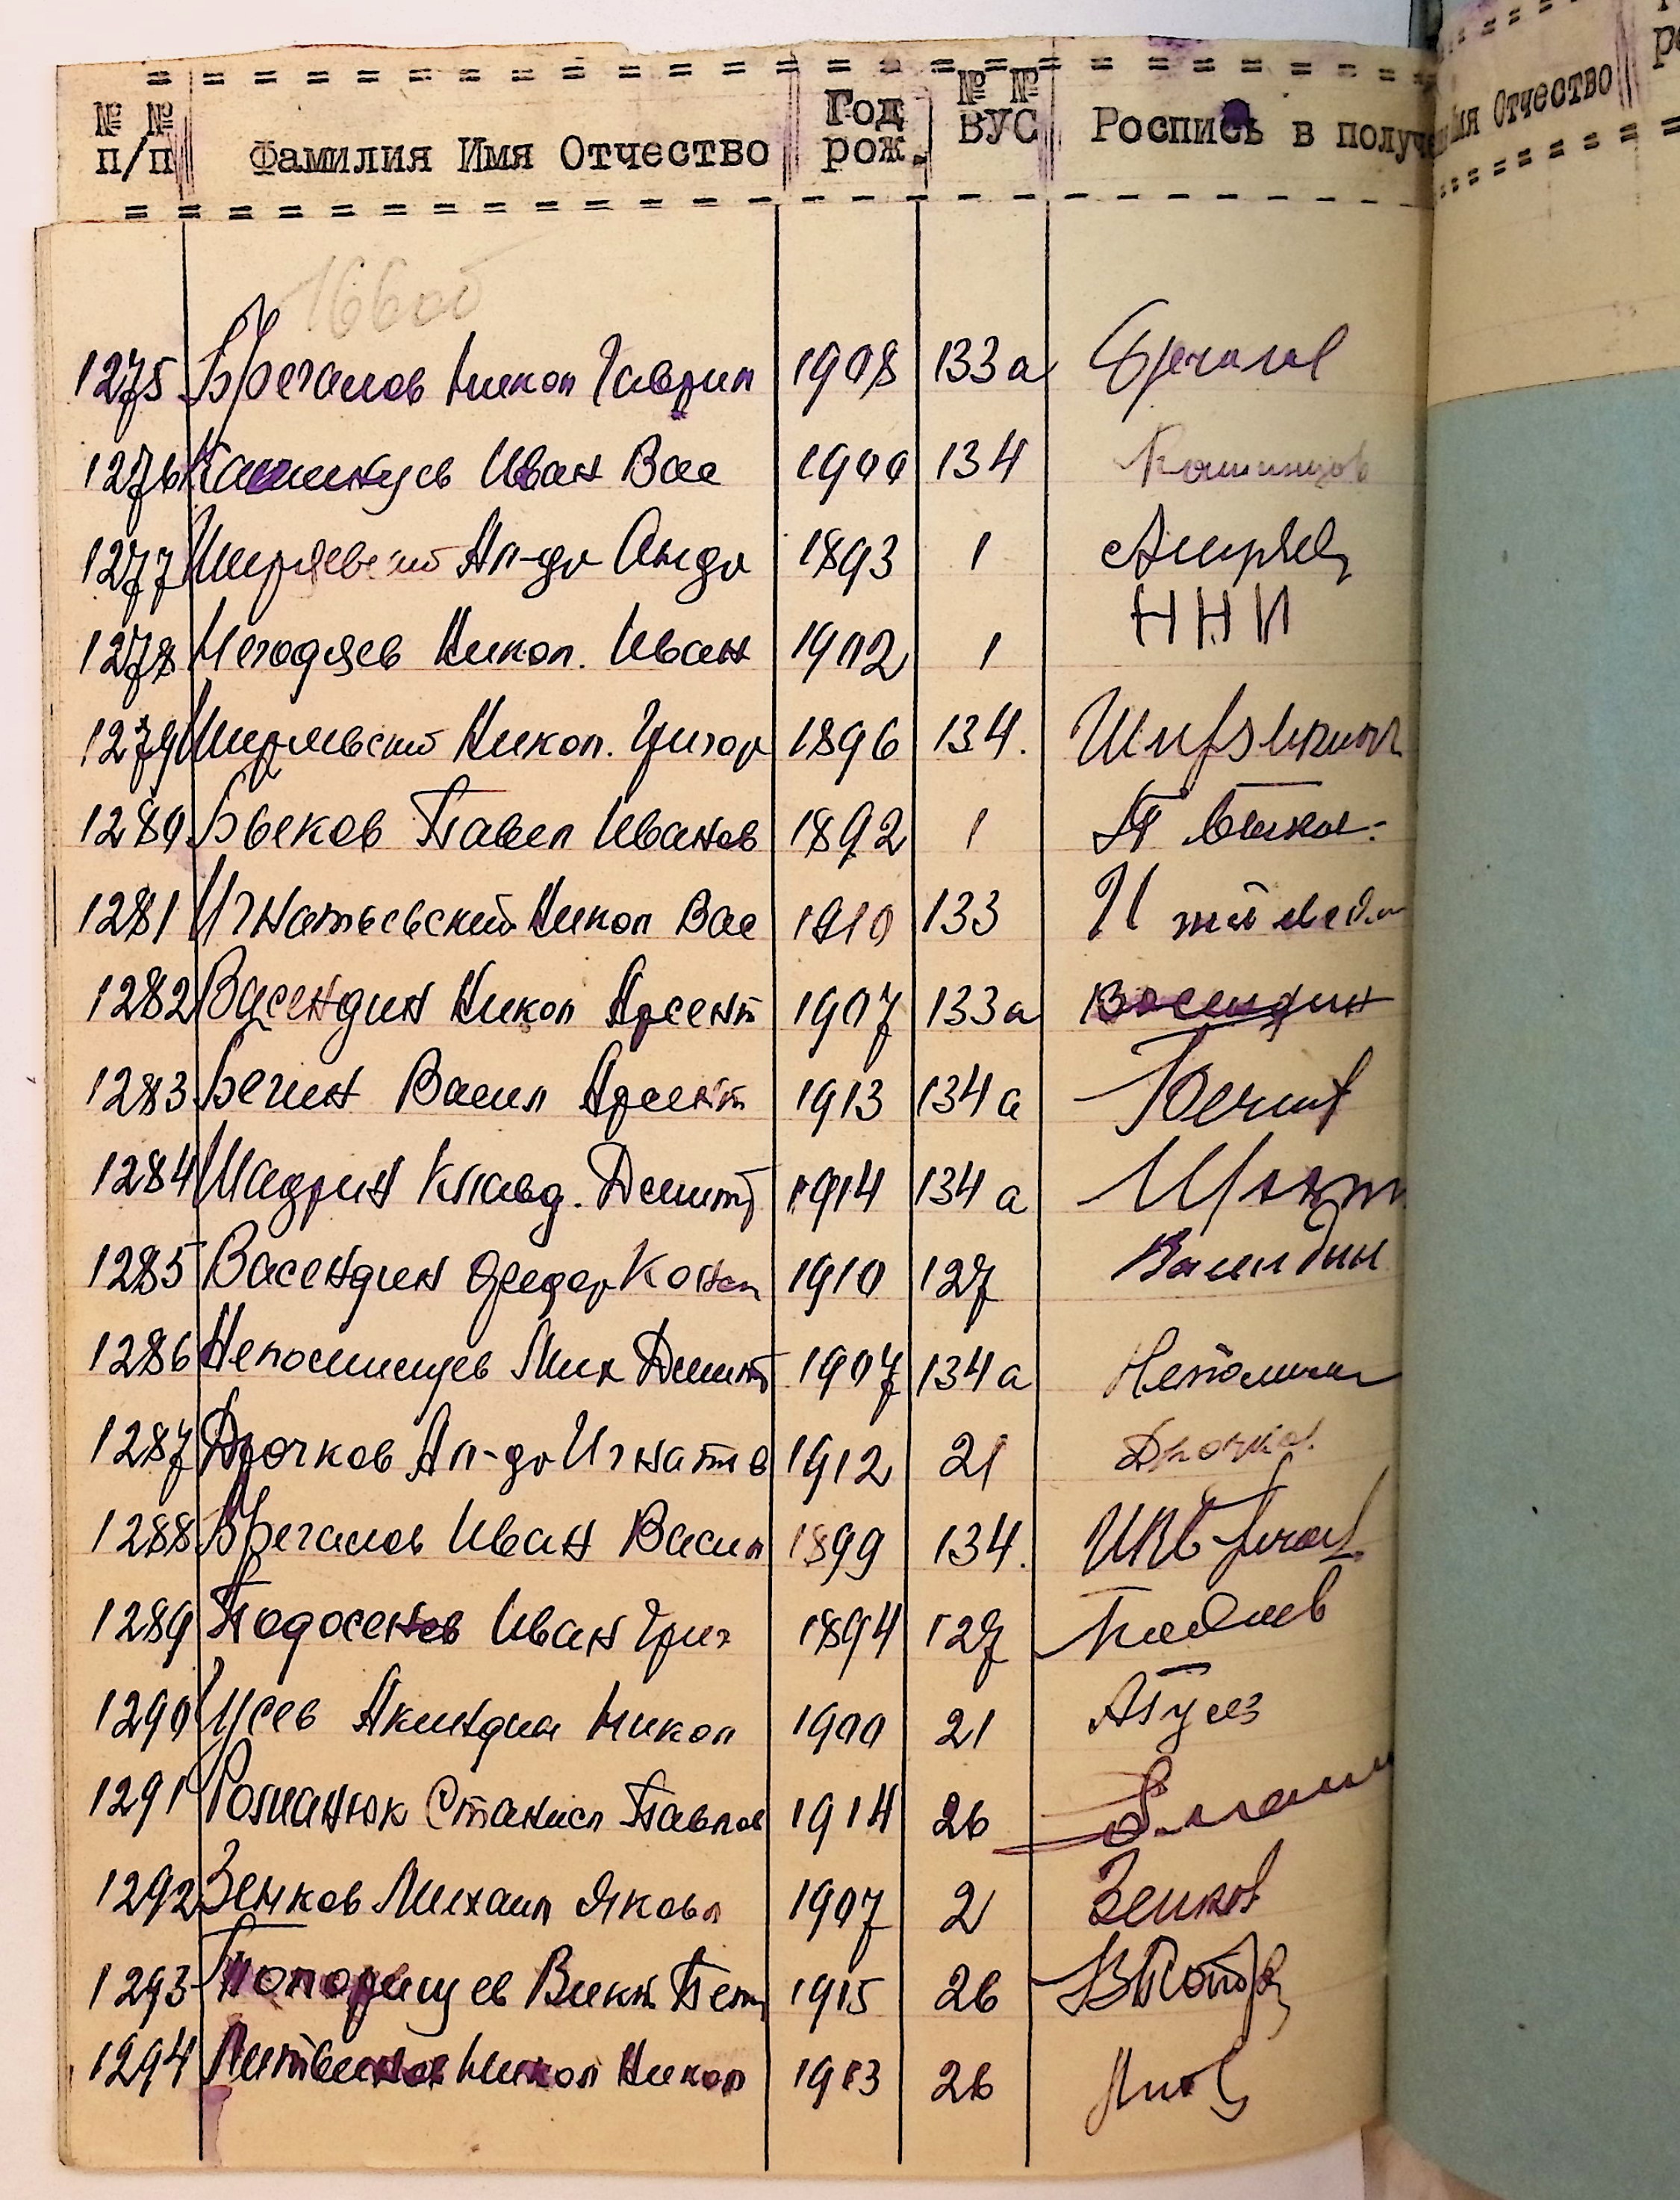 № № п/п Фамилия Имя Отчество Год рож. № № ВУС Роспись в получ
Имя Отчество
1275 Брегалов Никол Гаврил 1908 133а
1276 Кашинцев Иван Вас 1900 134 Кашинцов
1277 Ширяевский Ал-др Андр 1893 1
1278 Негодяев Никол. Иван 1902 1 ННИ
1279 Ширяевский Никол. Григор 1896 134.
1280 Быков Павел Иванов 1892 1
1281 Игнатьевский Никол Вас 1910 133
1282 Васендин Никол Арсент 1907 133а Васендин
1283 Бегин Васил Арсент 1913 134а
1284 Шадрин Клавд. Дмит 1914 134а
1285 Васендин Федор Конст 1910 127 Васендин
1286 Непомнищев Мих Дмит 1907 134а
1287 Дрочков Ал-др Игнатов 1912 21 Дрочков
1288 Брегалов Иван Васил 1899 134.
1289 Подосенов Иван Григ 1894 127
1290 Гусев Акиндин Никол 1900 21
1291 Романюк Станисл Павлов 1914 26
1292 Зенков Михаил Яковл 1907 2 Зенков
1293 Топорищев Викт Пет 1915 26
1294 Литвинов Никол Никол 1913 26